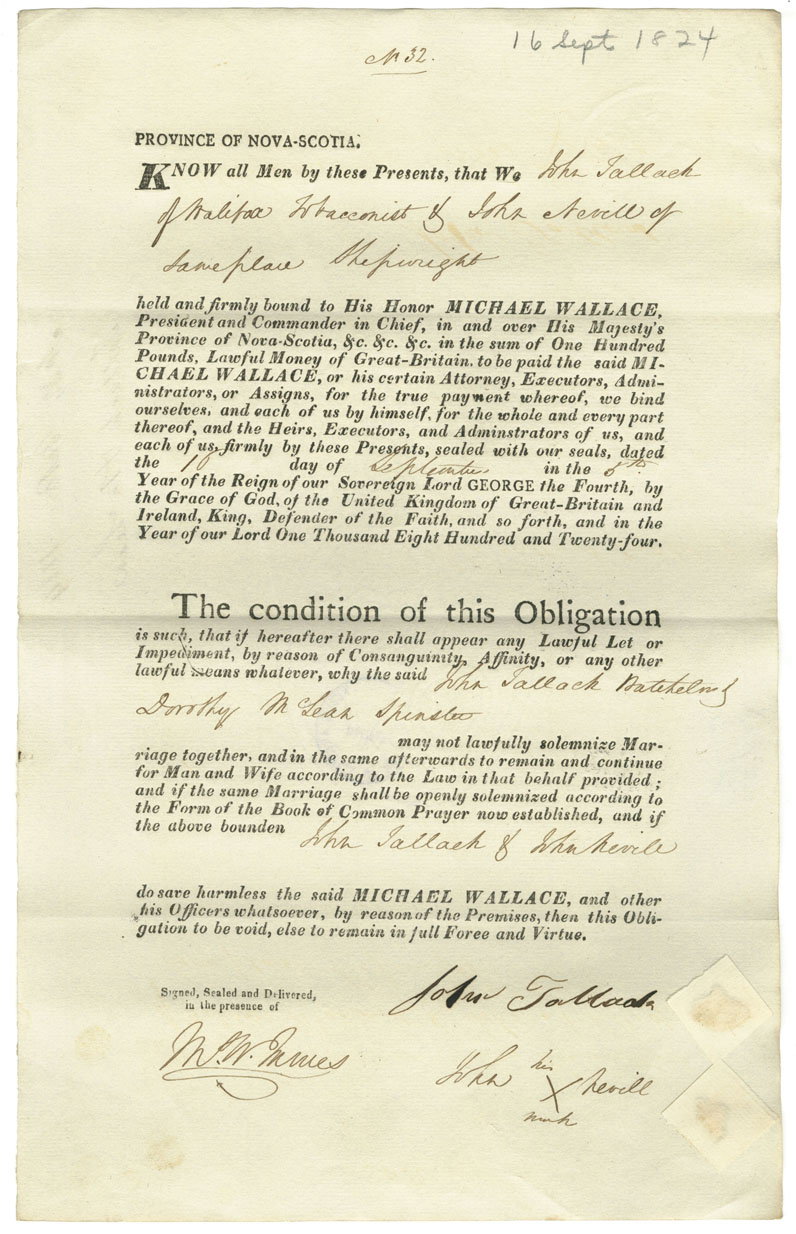 16 Sept 1824
No 32.
PROVINCE OF NOVA-SCOTIA.
KNOW all Men by these Presents, that We John Tallack
of Halifax Tobacconist & John Nevill of
same place Shipwright
held and firmly bound to His Honor MICHAEL WALLACE,
President and Commander in Chief, in and over His Majesty's
Province of Nova-Scotia, &c. &c. &c. in the sum of One Hundred
Pounds, Lawful Money of Great-Britain, to be paid the said MI-
CHAEL WALLACE, or his certain Attorney, Executors, Admi-
nistrators, or Assigns, for the true payment whereof, we bind
ourselves, and each of us by himself, for the whole and every part
thereof, and the Heirs, Executors, and Adminstrators of us, and
each of us, firmly by these Presents, sealed with our seals, dated
the 16 day of September in the 5th
Year of the Reign of our Sovereign Lord GEORGE the Fourth, by
the Grace of God, of the United Kingdom of Great-Britain and
Ireland, King, Defender of the Faith, and so forth, and in the
Year of our Lord One Thousand Eight Hundred and Twenty-four.
The condition of this Obligation
is such, that if hereafter there shall appear any Lawful Let or
Impediment, by reason of Consanguinity, Affinity, or any other
lawful means whatever, why the said John Tallack Batchelor &
Dorothy McLean Spinster
may not lawfully solemnize Mar-
riage together, and in the same afterwards to remain and continue
for Man and Wife according to the Law in that behalf provided;
and if the same Marriage shall be openly solemnized according to
the Form of the Book of Common Prayer now established, and if
the above bounden John Tallack & John Nevill
do save harmless the said MICHAEL WALLACE, and other
his Officers whatsoever, by reason of the Premises, then this Obli-
gation to be void, else to remain in full Foree and Virtue.
Signed, Sealed and Delivered,
in the presence of
John Tallack
James
his
John X Nevill
mark